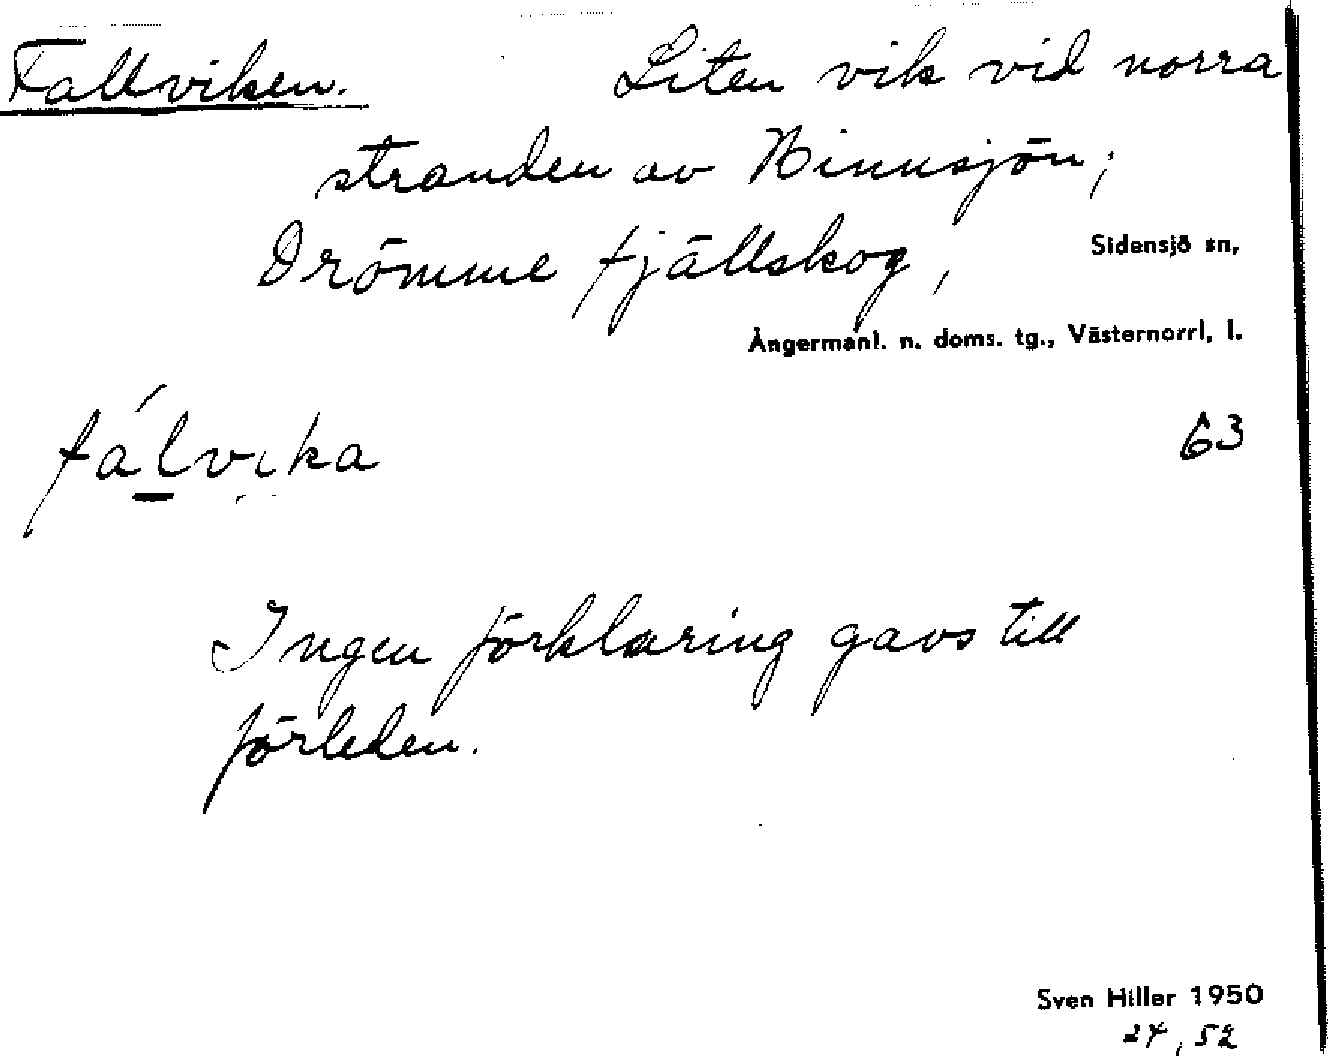 Fallviken. Liten vik vid norra
stranden av Binnsjön;
Drömme fjällskog, Sidensjö sn,
Ångermanl. n. doms. tg., Västernorrl. l.
fálvika 63
Ingen förklaring gavs till
förleden.
Sven Hiller 1950
27, 52